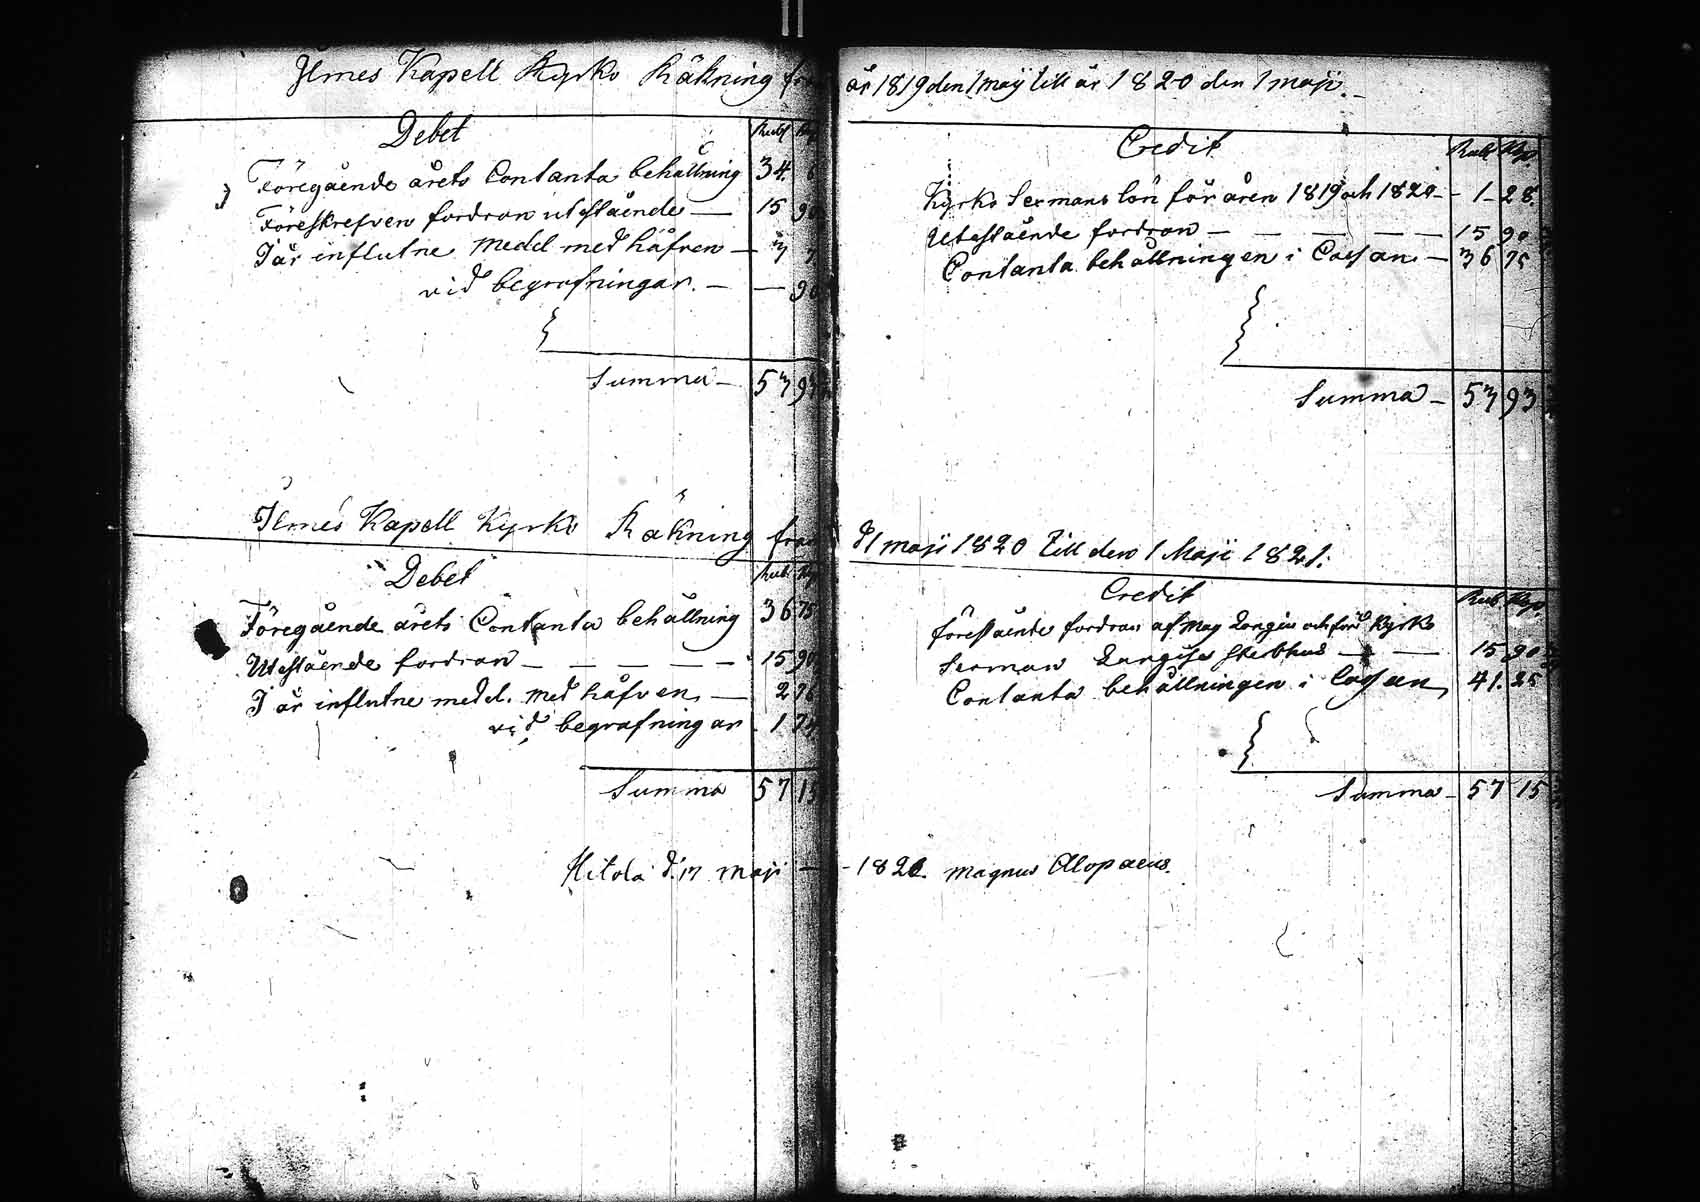 Ilmes Kapell Kyrko Räkning från
Debet
Rub Kop
Föregående årets Contanta behållning 34. 6
Föreskrefven fordran utestående — 15 90
I år influtne medel med håfven — 7 7
vid begrafningar. — — 90
Summa — 57 93
Ilmes Kapell Kyrko Räkning från
Debet
Rub. Kop
Föregående årets Contanta behållning 36 75
Utestående fordran — — — — — 15 90
I år influtne medel. med håfven, — 2 76
vid begrafningar 1 74
Summa 57 15
Hitola d. 17 maji —
år 1819 den 1 maij till år 1820 den 1 maji. —
Credit
Rub Kop
Kyrko Sexmans lön för åren 1819 och 1820 — 1 — 28
Utestående fordran — — — — — 15 90
Contanta behållningen i Cassan — 36 75
Summa — 53 93
d 1 maji 1820 till den 1 Maji 1821.
Credit
Rub Kop.
förestående fordran af Mag och Kyrko
Sexman sterbhus — — 15 90
Contanta behållningen i Cassan, 41. 25
Summa — 57 15
- 1821. Magnus Alopaeus.